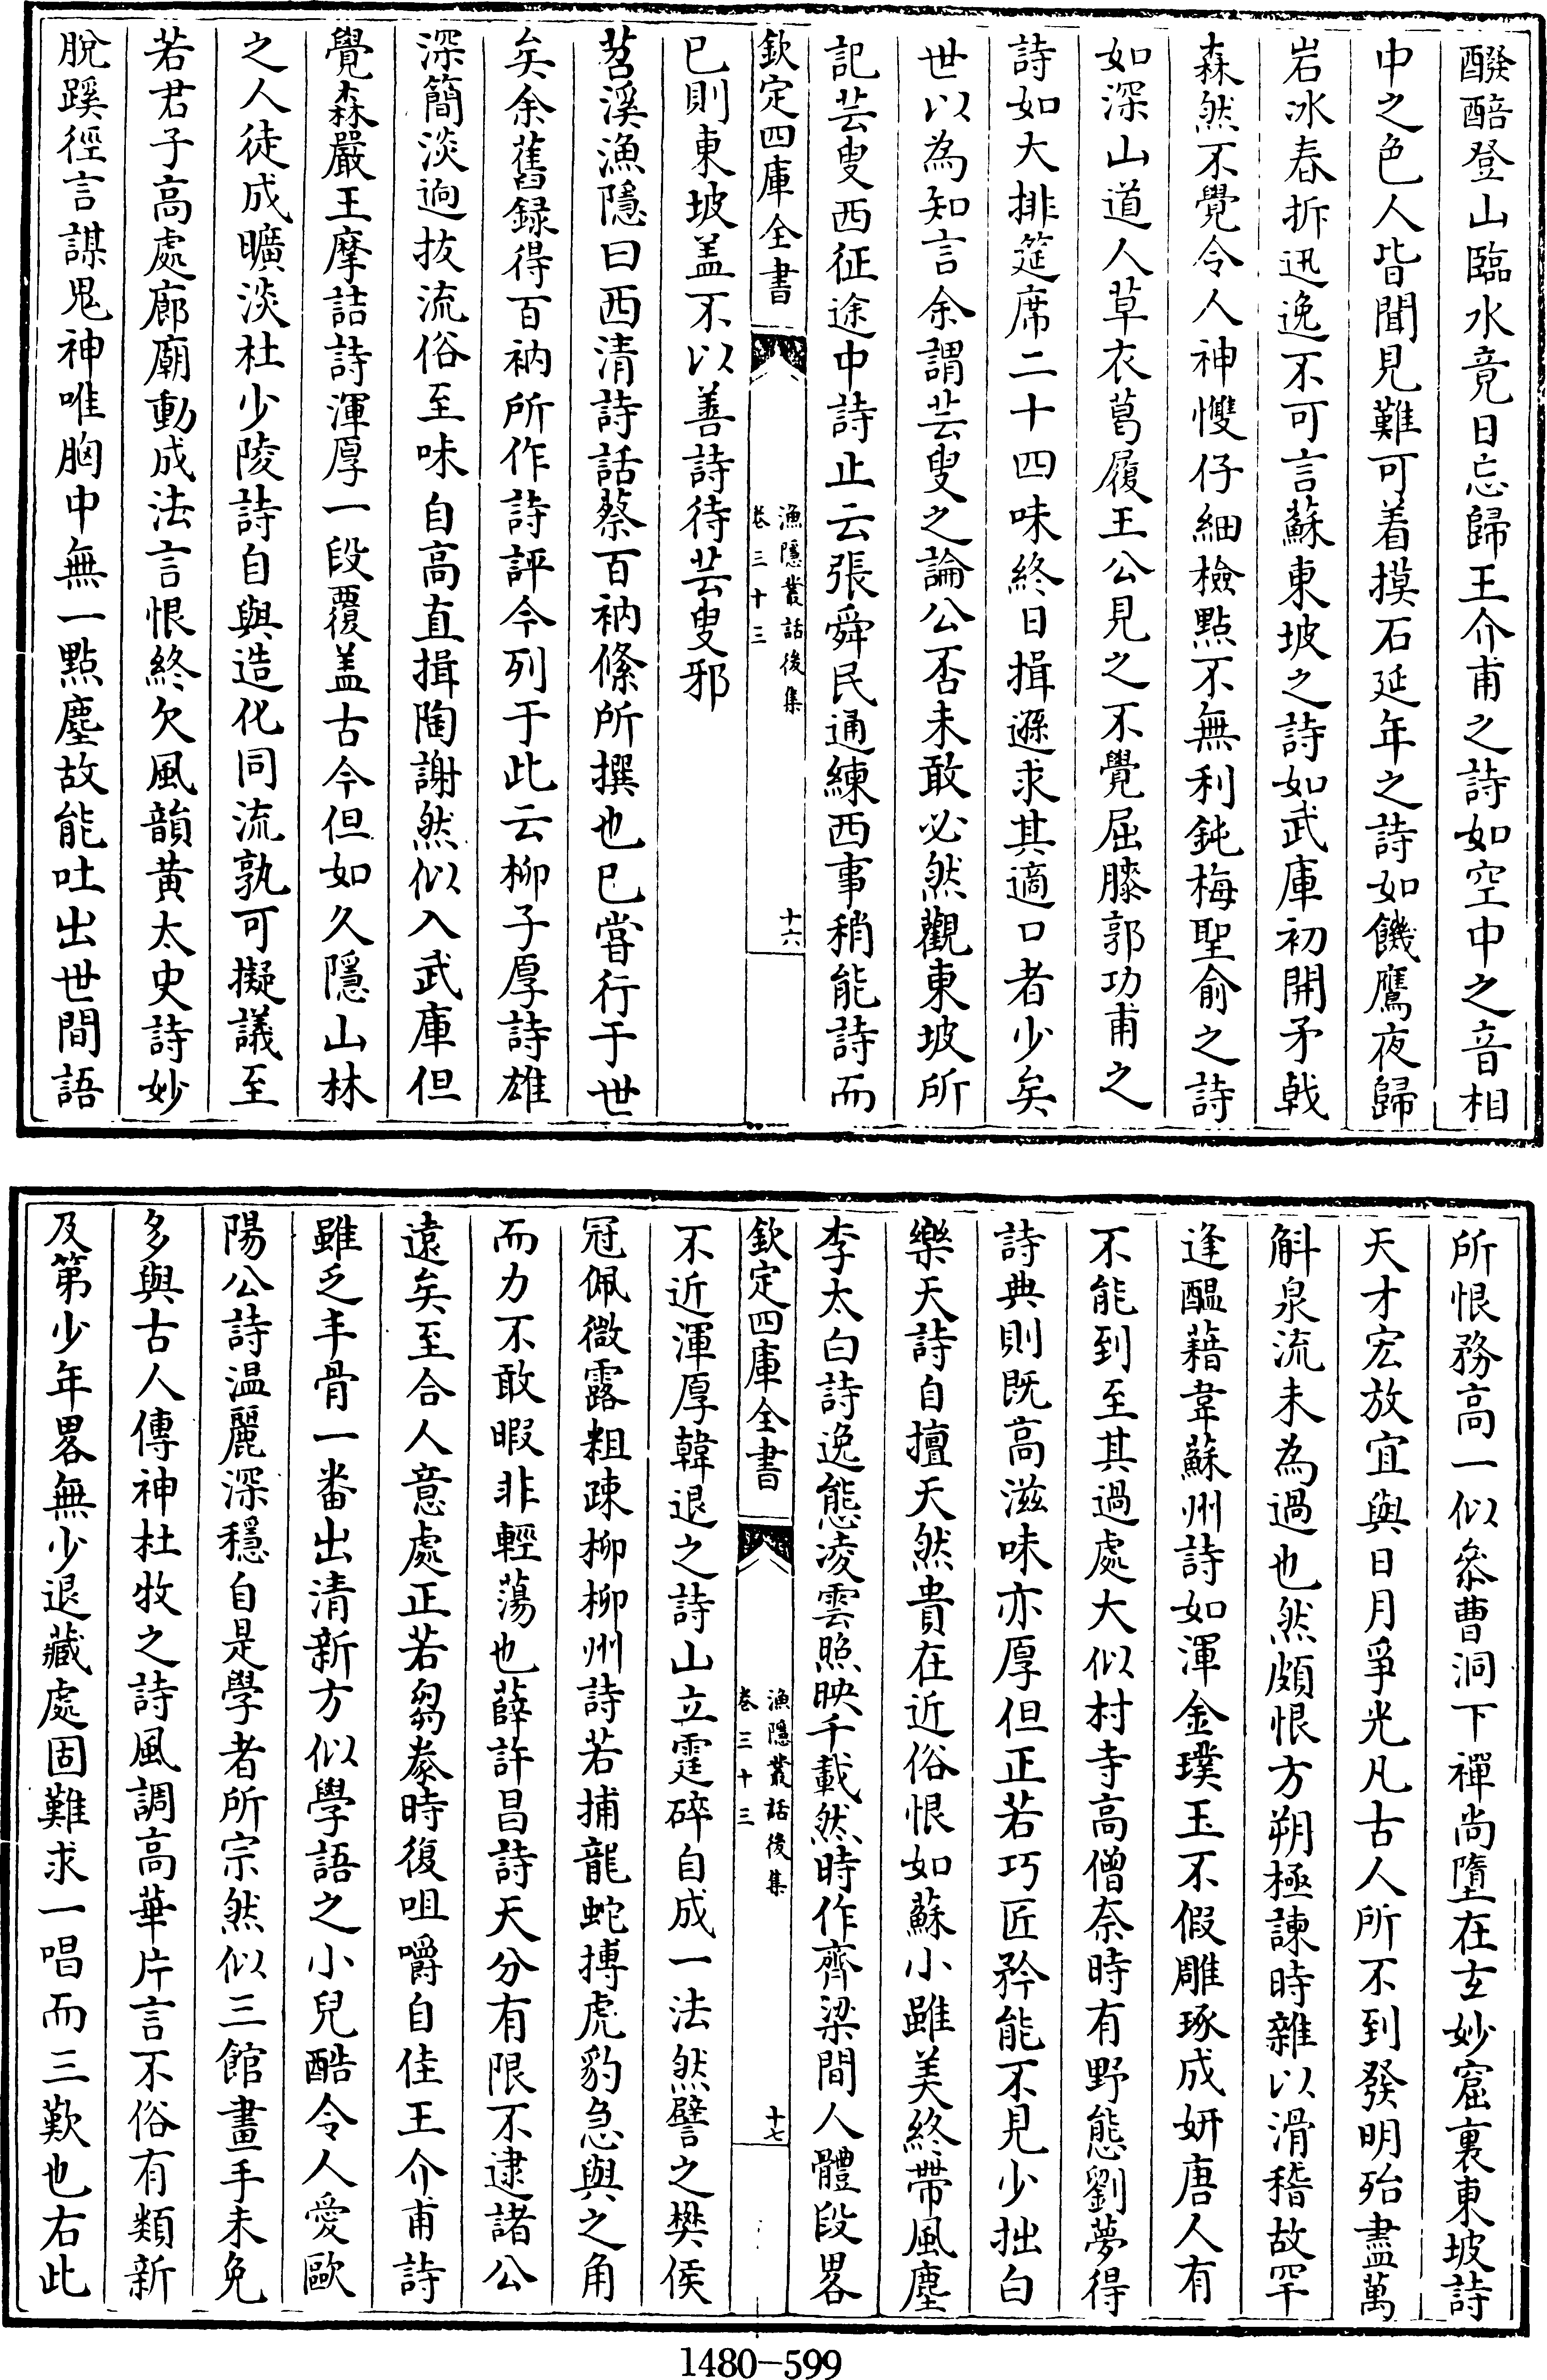 醱醅登山臨水竟日忘歸王介甫之詩如空中之音相
中之色人皆聞見難可着摸石延年之詩如饑鷹夜歸
岩冰春拆迅逸不可言蘇東坡之詩如武庫初開矛戟
森然不覺令人神慴仔細檢點不無利鈍梅聖俞之詩
如深山道人草衣葛履王公見之不覺屈膝郭功甫之
詩如大排筵席二十四味終日揖遜求其適口者少矣
世以為知言余謂芸叟之論公否未敢必然觀東坡所
記芸叟西征途中詩止云張舜民通練西事稍能詩而
欽定四庫全書
漁隱叢話後集
卷三十三
十六
已則東坡盖不以善詩待芸叟邪
苕溪漁隱曰西清詩話蔡百衲絛所撰也已嘗行于世
矣余舊録得百衲所作詩評今列于此云柳子厚詩雄
深簡淡逈拔流俗至味自高直揖陶謝然似入武庫但
覺森嚴王摩詰詩渾厚一段覆盖古今但如久隱山林
之人徒成曠淡杜少陵詩自與造化同流孰可擬議至
若君子高處廊廟動成法言恨終欠風韻黄太史詩妙
脫蹊徑言謀鬼神唯胸中無一點塵故能吐出世間語
所恨務高一似叅曹洞下禪尚墮在玄妙窟裏東坡詩
天才宏放宜與日月爭光凡古人所不到發明殆盡萬
斛泉流未為過也然頗恨方朔極諫時雜以滑稽故罕
逢醖藉韋蘇州詩如渾金璞玉不假雕琢成妍唐人有
不能到至其過處大似村寺高僧奈時有野態劉夢得
詩典則既高滋味亦厚但正若巧匠矜能不見少拙白
樂天詩自擅天然貴在近俗恨如蘇小雖美終帶風塵
李太白詩逸態凌雲照映千載然時作齊梁間人體段畧
欽定四庫全書
漁隱叢話後集
卷三十三
十七
不近渾厚韓退之詩山立霆碎自成一法然譬之樊侯
冠佩微露粗疎柳柳州詩若捕龍蛇搏虎豹急與之角
而力不敢暇非輕蕩也薛許昌詩天分有限不逮諸公
遠矣至合人意處正若芻豢時復咀嚼自佳王介甫詩
雖乏丰骨一番出清新方似學語之小兒酷令人愛歐
陽公詩温麗深穩自是學者所宗然似三館畫手未免
多與古人傳神杜牧之詩風調高華片言不俗有類新
及第少年畧無少退藏處固難求一唱而三歎也右此
1480-599